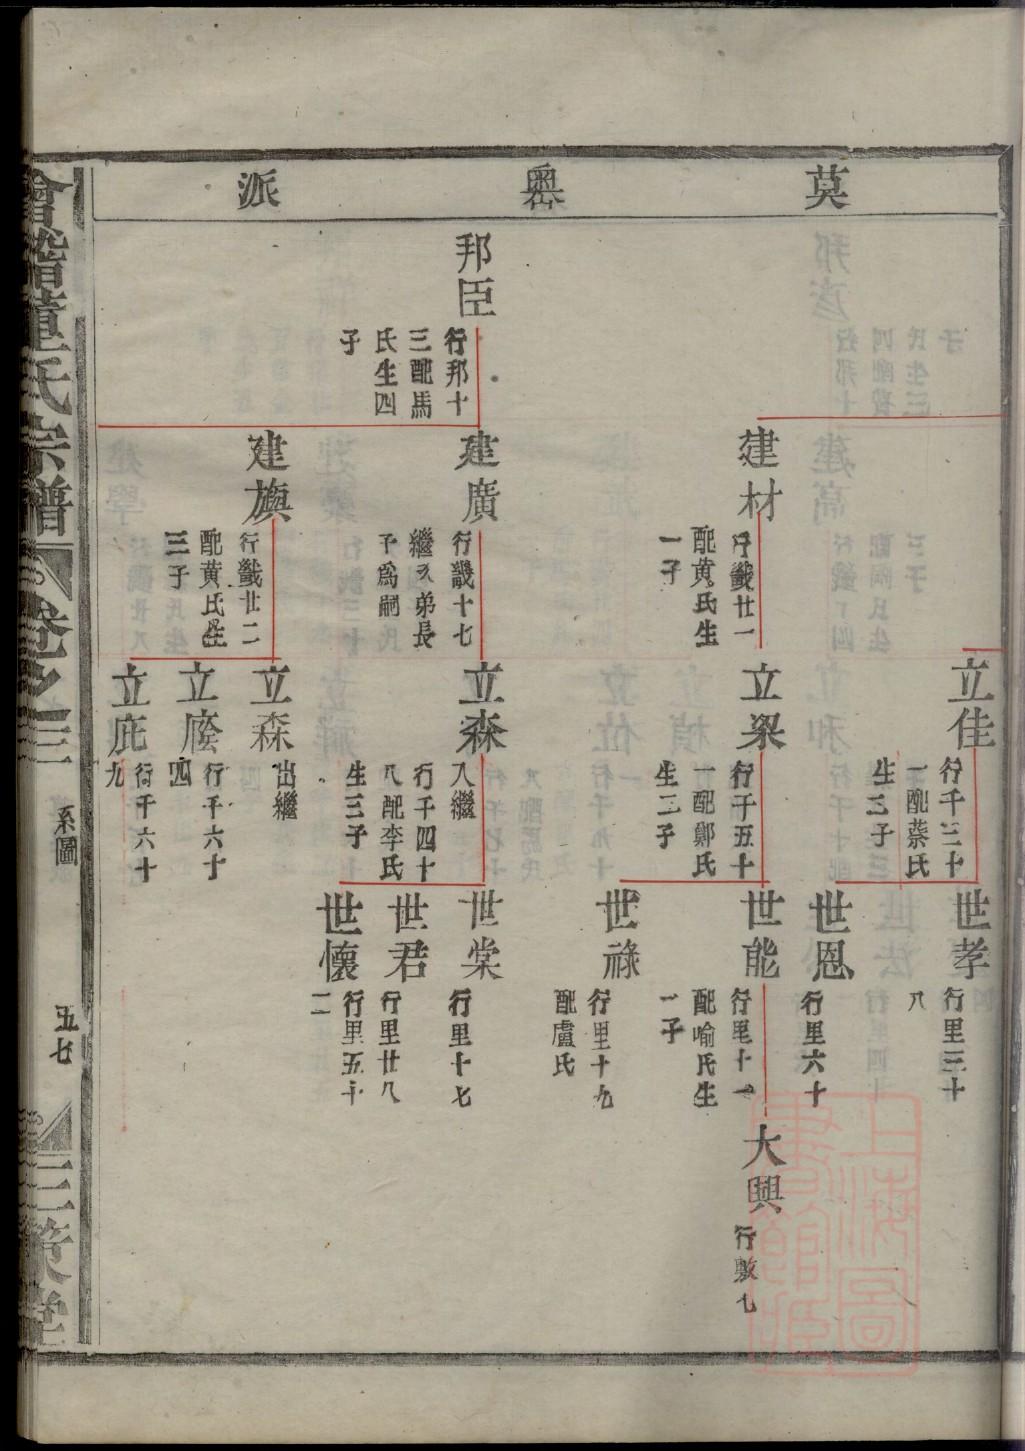 莫嶴派
邦臣
行邦十
三配馬
氏生四
子
建材
行鐖廿一
配黄氏生
一子
建廣
行譏十七
繼次弟長
子爲嗣
建旟
行鐖廿二
配黄氏生
三子
立佳
行千三十
一配蔡氏
生二子
立梁
行千五十
一配鄭氏
生二子
立森
入繼
行千四十
八配李氏
生三子
立森
出繼
立廕
行千六十
四
立庇
行千六十
九
世孝
行里三十
八
世恩
行里六十
世能
行里十一
配喻氏生
一子
世祿
行里十九
配盧氏
世棠
行里十七
世君
行里廿八
世懷
行里五十
二
大興
行敷七
會稽董氏宗譜
卷之三
系圖
五七
三策堂
上海圖
書館藏